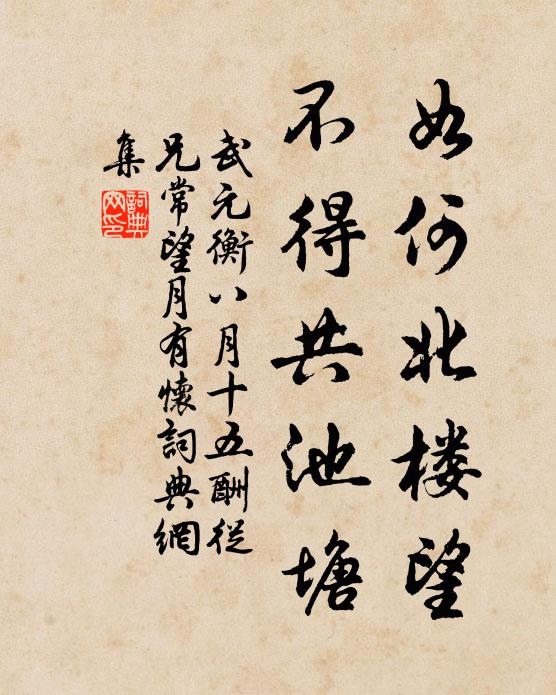 如何北楼望
不得共池塘
武元衡八月十五酬從
兄常望月有懷詞典網
集
詞典
网印